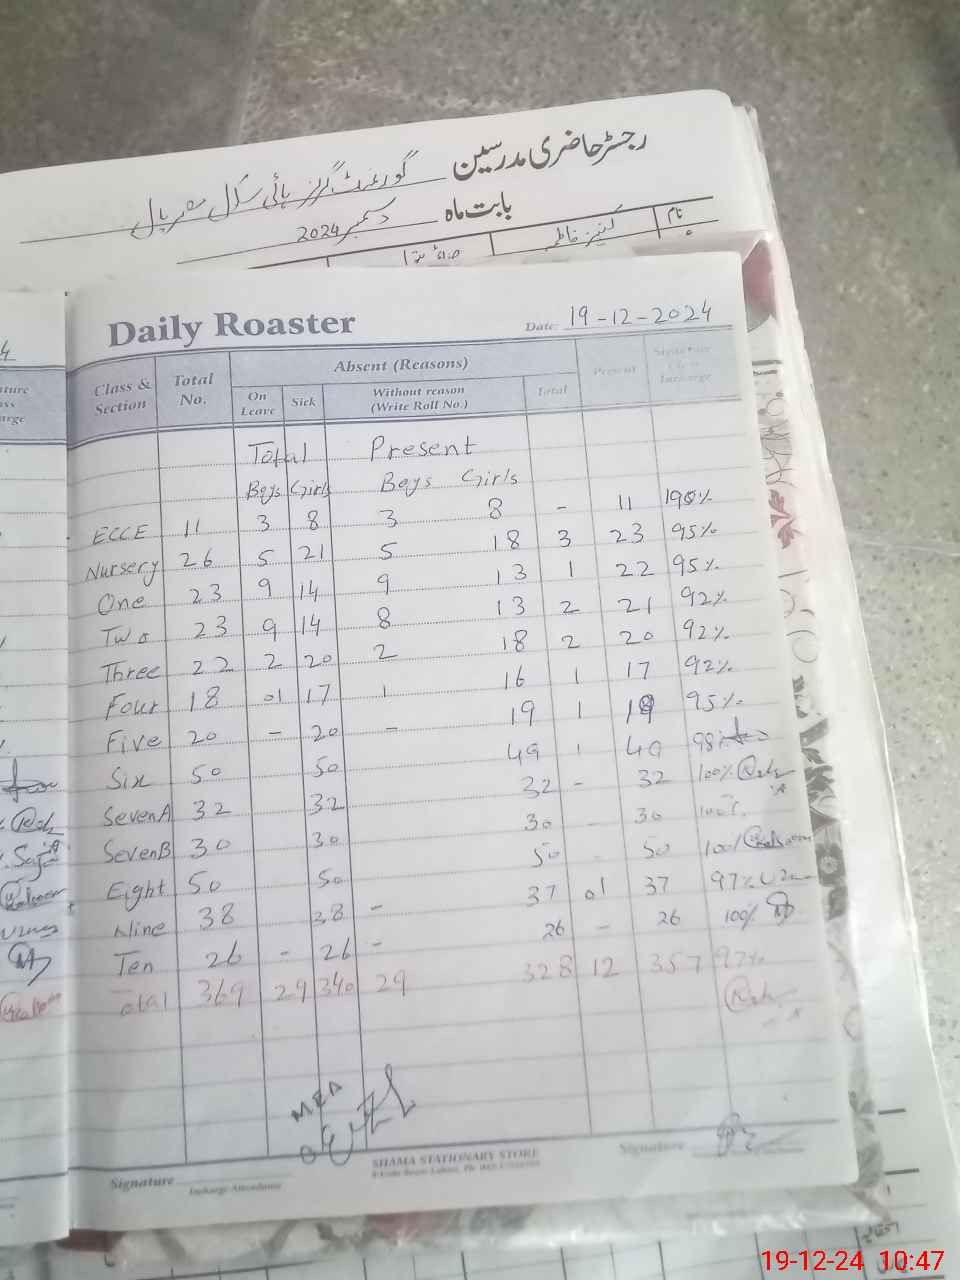 رجسٹر حاضری مدرسین گورنمنٹ گرلز ہائی سکول
بابت ماہ دسمبر 2024
نام کنیز فاطمہ
Daily Roaster
Date: 19-12-2024
Class & Section Total No. Absent (Reasons) Present Signature Class Incharge
On Leave Sick Without reason (Write Roll No.) Total
Total Present
Boys Girls Boys Girls
ECCE 11 3 8 3 8 - 11 100%
Nursery 26 5 21 5 18 3 23 95%
One 23 9 14 9 13 1 22 95%
Two 23 9 14 8 13 2 21 92%
Three 22 2 20 2 18 2 20 92%
Four 18 01 17 1 16 1 17 92%
Five 20 - 20 - 19 1 19 95%
Six 50 50 49 1 49 98%
Seven A 32 32 32 - 32 100%
Seven B 30 30 30 - 30 100%
Eight 50 50 50 - 50 100%
Nine 38 38 - 37 01 37 97%
Ten 26 - 26 - 26 - 26 100%
Total 369 29 340 29 328 12 357 97%
MEA
SHAMA STATIONARY STORE
Signature Incharge Attendance Signature
19-12-24 10:47